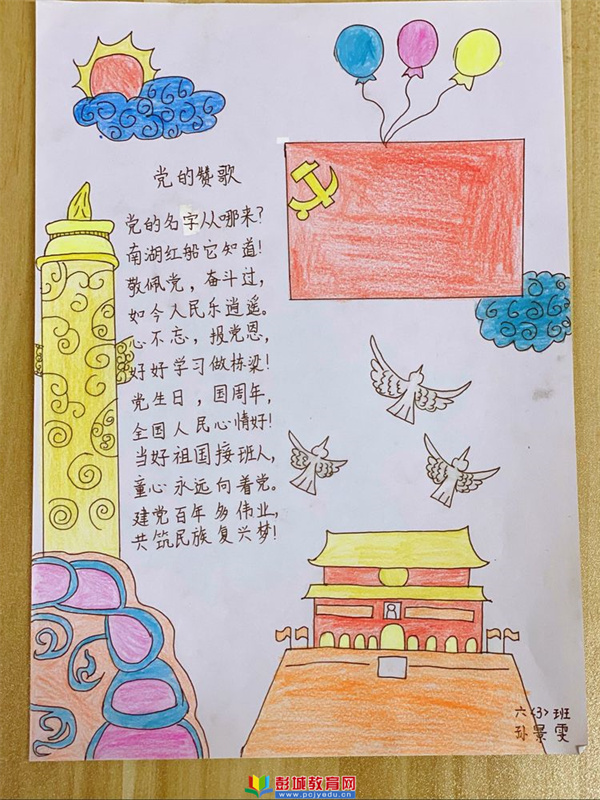 党的赞歌
党的名字从哪来?
南湖红船它知道!
敬佩党，奋斗过，
如今人民乐逍遥。
心不忘，报党恩，
好好学习做栋梁!
党生日，国周年，
全国人民心情好!
当好祖国接班人，
童心永远向着党。
建党百年多伟业，
共筑民族复兴梦!
六<3>班
孙景雯
彭城教育网
www.pcjyedu.cn